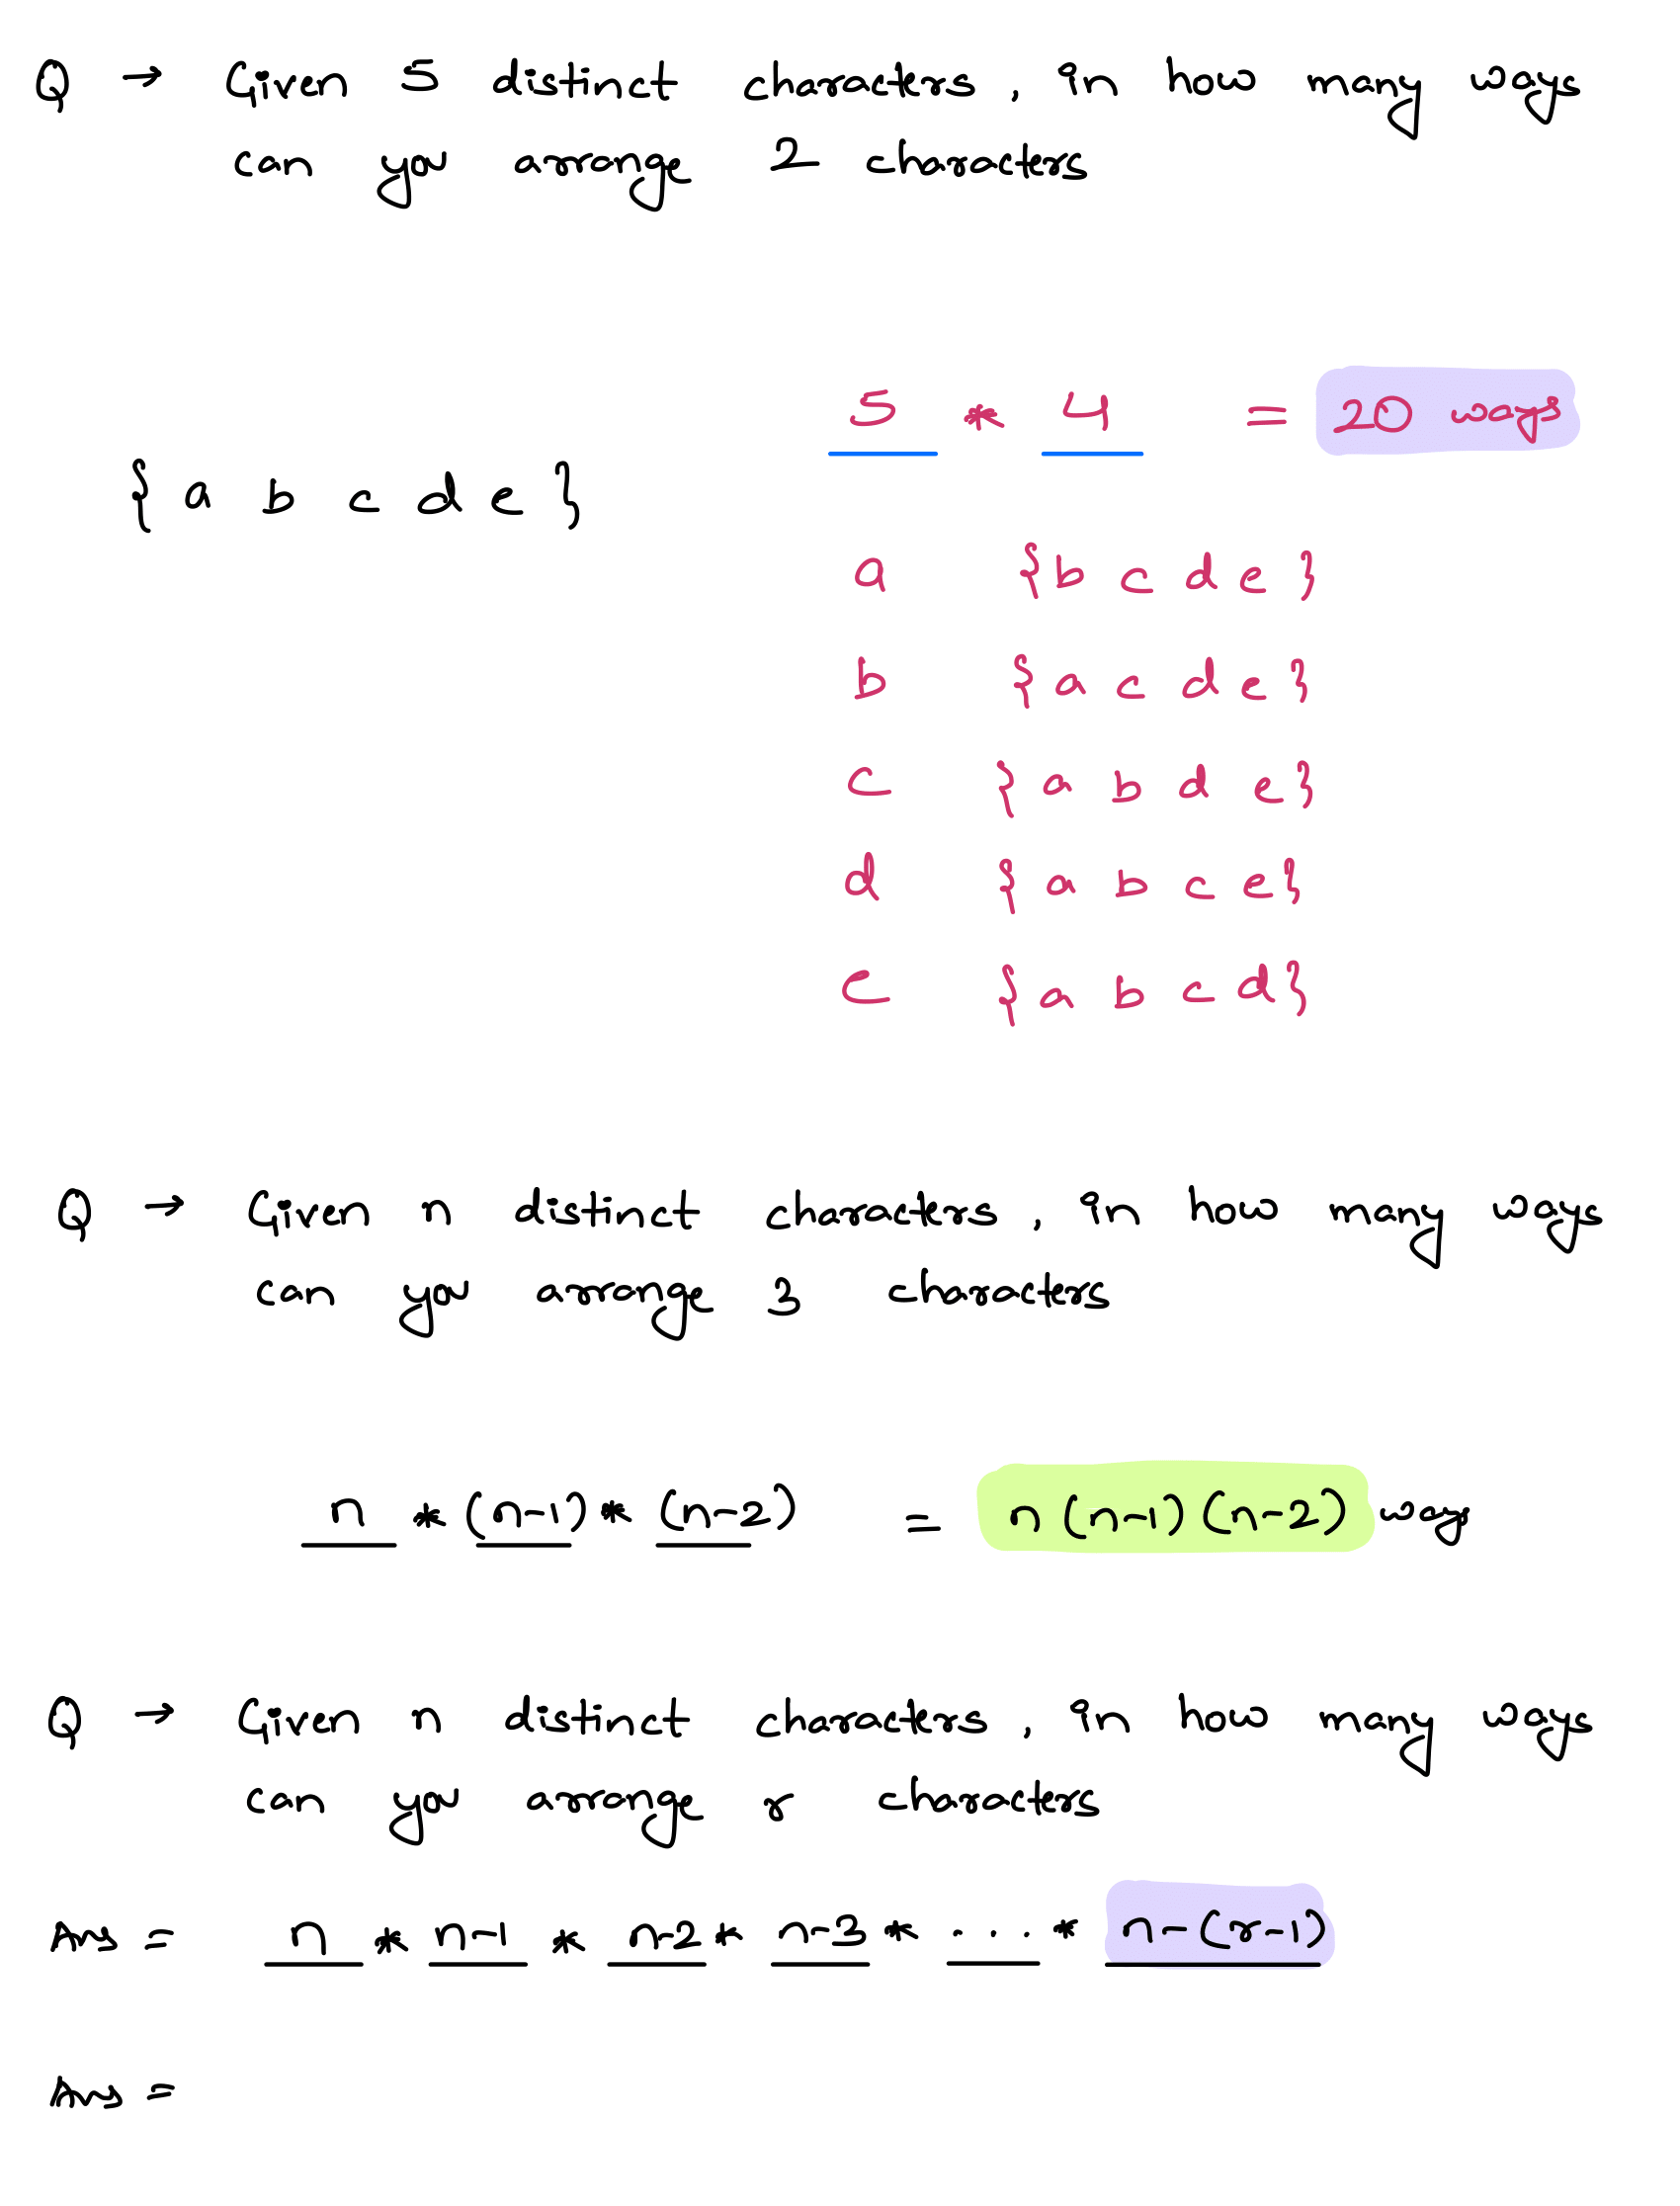 Q → Given 5 distinct characters, in how many ways
can you arrange 2 characters
5 * 4 = 20 ways
{ a b c d e }
a { b c d e }
b { a c d e }
c { a b d e }
d { a b c e }
e { a b c d }
Q → Given n distinct characters, in how many ways
can you arrange 3 characters
n * (n-1) * (n-2) = n (n-1) (n-2) ways
Q → Given n distinct characters, in how many ways
can you arrange r characters
Ans = n * n-1 * n-2 * n-3 * ... * n-(r-1)
Ans =